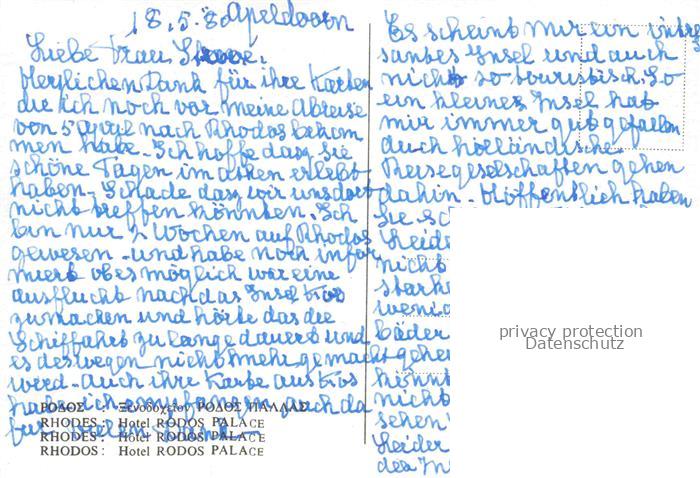 18.5.80 Apeldoorn
Liebe Frau
Herzlichen Dank für ihre Karten
die ich noch vor meine Abreise
von 5 April nach Rhodos bekom
men habe. Ich hoffe dass Sie
schöne Tagen im athen erlebt
haben. Schade dass wir uns dort
nicht treffen könnten. Ich
bin nur 2 Wochen auf Rhodos
gewesen - und habe noch infor
miert ob es möglich wäre eine
ausflucht nach das Insel Kos
zu machen und hörte das die
Schiffahrt zu lange dauert und
es deswegen nicht mehr gemacht
werd. Auch ihre Karte aus Kos
habe ich empfangen auch da
für vielen Dank.
ΡΟΔΟΣ : Ξενοδοχείον ΡΟΔΟΣ ΠΑΛΛΑΣ
RHODES : Hotel RODOS PALACE
RHODES : Hôtel RODOS PALACE
RHODOS : Hotel RODOS PALACE
Es scheint mir ein intres
santes Insel und auch
nicht so touristisch. So
ein kleines Insel hat
mir immer gut gefallen
auch holländische
Reisegesellschaften gehen
dahin. Hoffentlich haben
Sie
Leider
nicht
wenig
bäder
gehen
könnt
nicht
sehen
Leider
das In
privacy protection
Datenschutz